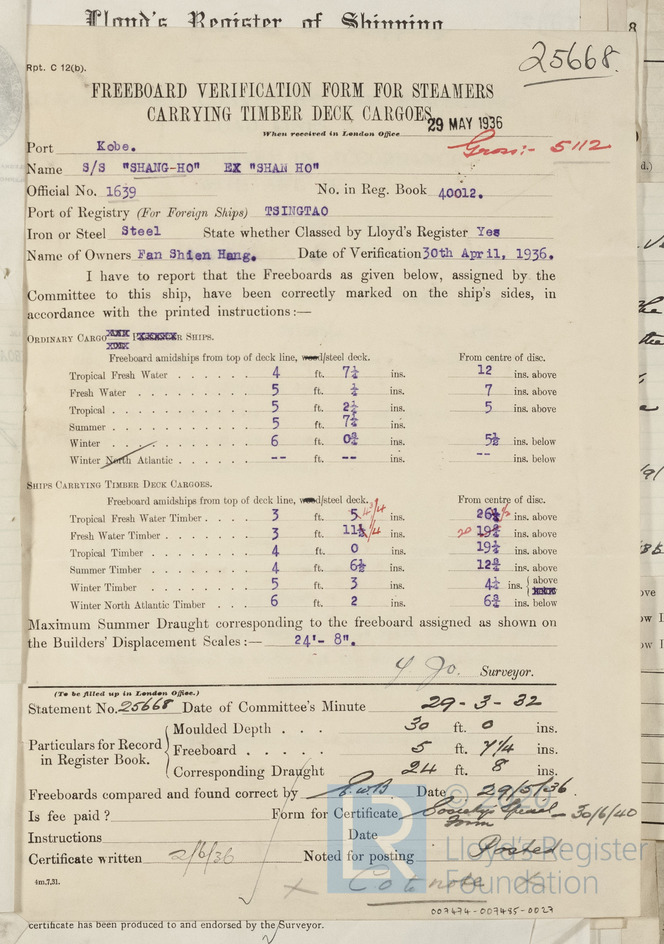 Lloyd's Register of Shipping
Rpt. C 12(b).
25668.
FREEBOARD VERIFICATION FORM FOR STEAMERS
CARRYING TIMBER DECK CARGOES
29 MAY 1936
When received in London Office
Gross:- 5112
Port Kobe.
Name S/S "SHANG-HO" EX "SHAN HO"
Official No. 1639 No. in Reg. Book 40012.
Port of Registry (For Foreign Ships) TSINGTAO
Iron or Steel Steel State whether Classed by Lloyd's Register Yes
Name of Owners Fan Shien Hang. Date of Verification 30th April, 1936.
I have to report that the Freeboards as given below, assigned by the
Committee to this ship, have been correctly marked on the ship's sides, in
accordance with the printed instructions:—
ORDINARY CARGO SHIPS.
Freeboard amidships from top of deck line, wood/steel deck. From centre of disc.
Tropical Fresh Water 4 ft. 7½ ins. 12 ins. above
Fresh Water 5 ft. ½ ins. 7 ins. above
Tropical 5 ft. 2¼ ins. 5 ins. above
Summer 5 ft. 7¼ ins.
Winter 6 ft. 0¾ ins. 5½ ins. below
Winter North Atlantic -- ft. -- ins. -- ins. below
SHIPS CARRYING TIMBER DECK CARGOES.
Freeboard amidships from top of deck line, wood/steel deck. From centre of disc.
Tropical Fresh Water Timber 3 ft. 5 ins. 26½ ins. above
Fresh Water Timber 3 ft. 11¼ ins. 20 19¾ ins. above
Tropical Timber 4 ft. 0 ins. 19½ ins. above
Summer Timber 4 ft. 6½ ins. 12¾ ins. above
Winter Timber 5 ft. 3 ins. 4¼ ins. above
Winter North Atlantic Timber 6 ft. 2 ins. 6¾ ins. below
Maximum Summer Draught corresponding to the freeboard assigned as shown on
the Builders' Displacement Scales:— 24'- 8".
Surveyor.
(To be filled up in London Office.)
Statement No. 25668 Date of Committee's Minute 29-3-32
Particulars for Record in Register Book.
Moulded Depth 30 ft. 0 ins.
Freeboard 5 ft. 7¼ ins.
Corresponding Draught 24 ft. 8 ins.
Freeboards compared and found correct by E.W.B Date 29/5/36.
Is fee paid? Form for Certificate Society's Special Form - 30/6/40
Instructions Date
Certificate written 2/6/36 Noted for posting Posted
4m,7,31.
© 2020
Lloyd's Register
Foundation
007474-007485-0027
certificate has been produced to and endorsed by the Surveyor.